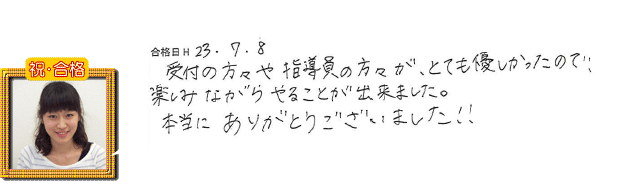 祝・合格
合格日H 23.7.8
受付の方々や指導員の方々が、とても優しかったので、
楽しみながらやることが出来ました。
本当にありがとうございました!!